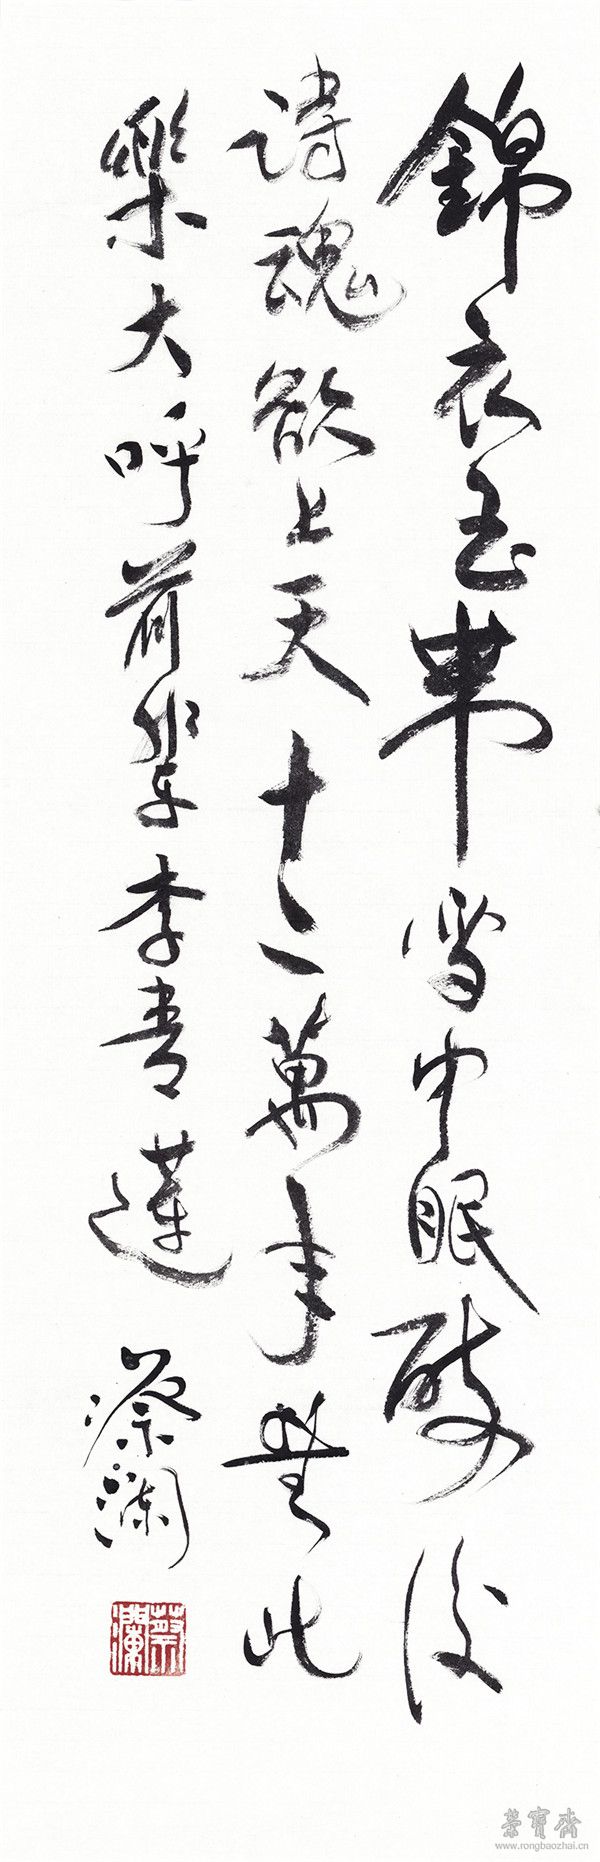 錦衣玉帶雪中眠醉後
詩魂欲上天十二萬年無此
樂大呼前輩李青蓮
蔡瀾
蔡瀾
榮寶齋
www.rongbaozhai.cn